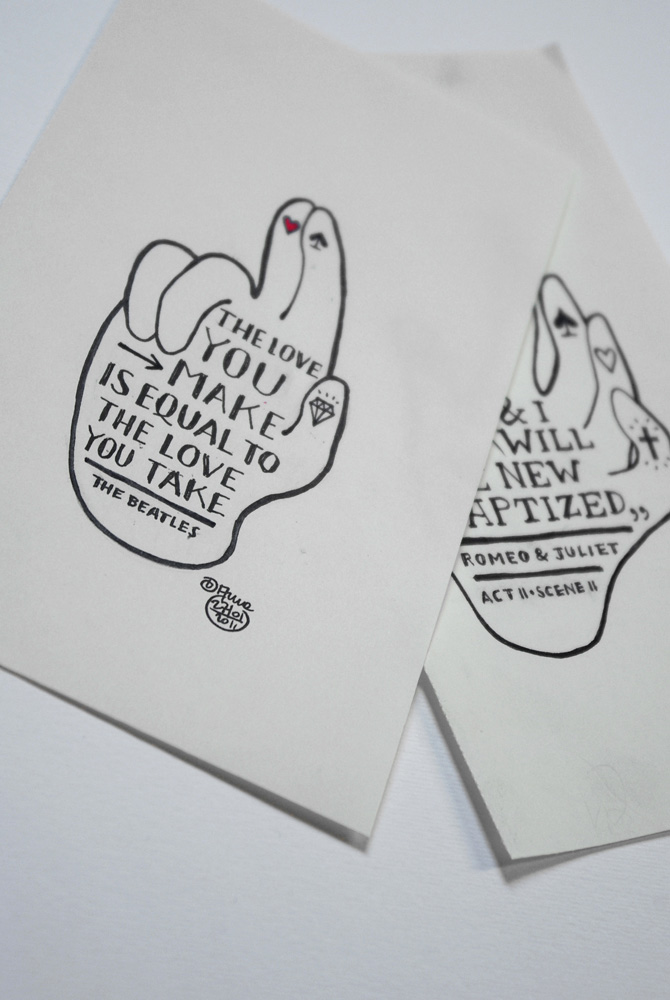 THE LOVE
YOU
MAKE
IS EQUAL TO
THE LOVE
YOU TAKE
THE BEATLES
2011
& I
WILL
NEW
APTIZED,,
ROMEO & JULIET
ACT II • SCENE II